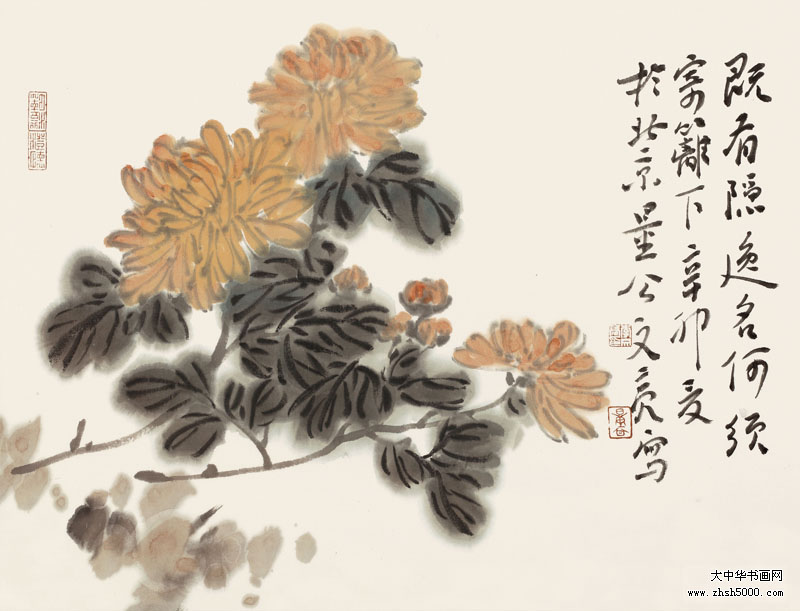 既有隐逸名何须
寄篱下辛卯夏
于北京量公文亮写
大中华书画网
www.zhsh5000.com